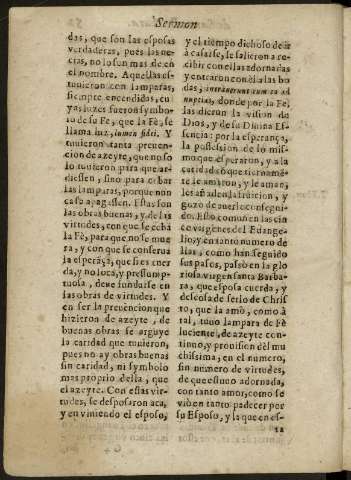 Sermon
das, que son las esposas
verdaderas, pues las ne-
cias, no lo sun mas de en
el nombre. Aquellas es-
tuuieron con lamparas,
siempre encendidas, cu-
yas luzes fueron symbo-
lo de su Fè, que la Fè, se
llama luz, lumen fidei. Y
tuuieron tanta preuen-
cion de azeyte, que no so
lo tuuieron para que ar-
diessen, sino para cebar
las lamparas, porque non
ca se apagassen. Estas son
las obras buenas, y de las
virtudes, con que se ceba
la Fè, para que no se mue
ra, y con que se conserua
la esperãça, que si es cuer
da, y no loca, y presump-
tuosa, deue fundarse en
las obras de virtudes. Y
en ser la preuencion que
hizieron de azeyte, de
buenas obras se arguye
la caridad que tuuieron,
pues no ay obras buenas
sin caridad, ni symbolo
mas proprio della, que
el azeyte. Con estas vir-
tudes, se desposaron aca,
y en viniendo el esposo,
y el tiempo dichoso de ir
à casarse, le salieron a re-
cibir con ellas adornadas
y entraron con èl a las bo
das, intrauerunt cum eo ad
nuptias, donde por la Fe,
las dieron la vision de
Dios, y de su Diuina Es-
sencia: por la esperança,
la possession de lo mis-
mo que esperaron, y a la
caridad cõ que tiername-
te le amaron, y le aman,
les añaden la fruicion, y
gozo de auerle consegui-
do. Esto comun en las cin
co virgenes del Euange-
lio, y en tanto numero de
llas, como han seguido
sus pasos, passò en la glo
riosa virgen santa Barba-
ra, que esposa cuerda, y
deseosa de serlo de Chris
to, que la amò, como à
tal, tuuo lampara de Fè
luciente, de azeyte conti-
nuo, y prouision dèl mu
chissima; en el numero,
sin numero de virtudes,
de que estuuo adornada,
con tanto amor, como se
viò en tanto padecer por
su Esposo, y la que en es-
ta